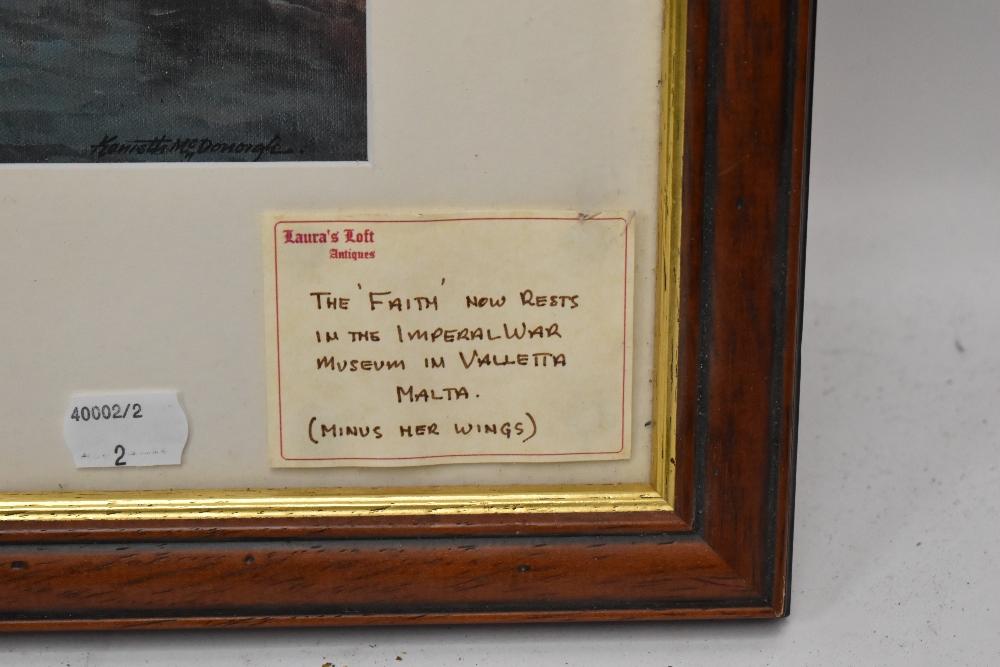 Kenneth McDonough.
Laura's Loft
Antiques
THE 'FAITH' NOW RESTS
IN THE IMPERAL WAR
MUSEUM IN VALLETTA
MALTA.
(MINUS HER WINGS)
40002/2
2